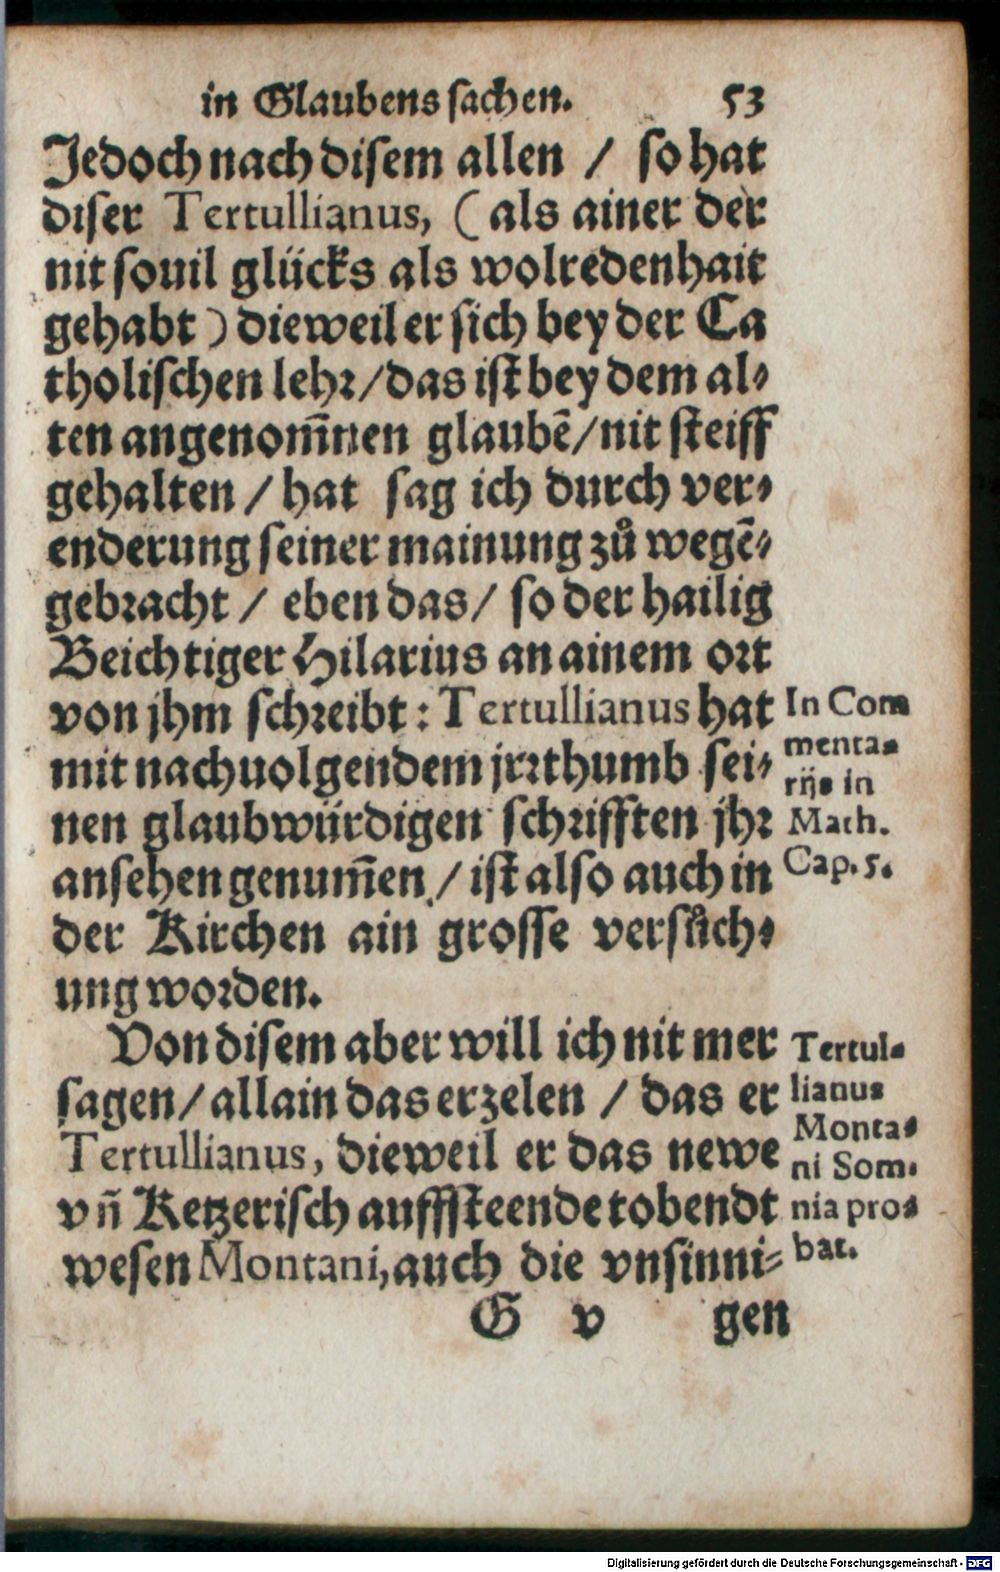 in Glaubens sachen. 53
Jedoch nach disem allen / so hat
diser Tertullianus, (als ainer der
nit souil glücks als wolredenhait
gehabt) dieweil er sich bey der Ca
tholischen lehr/das ist bey dem al-
ten angenom̃nen glaubẽ/nit steiff
gehalten / hat sag ich durch ver-
enderung seiner mainung zů wegẽ-
gebracht / eben das/ so der hailig
Beichtiger Hilarius an ainem ort
von jhm schreibt: Tertullianus hat
mit nachuolgendem jrrthumb sei-
nen glaubwürdigen schrifften jhr
ansehen genum̃en / ist also auch in
der Kirchen ain grosse versůch-
ung worden.
In Com
menta-
rijs in
Math.
Cap. 5.
Von disem aber will ich nit mer
sagen/allain das erzelen / das er
Tertullianus, dieweil er das newe
vñ Ketzerisch auffsteende tobendt
wesen Montani, auch die vnsinni-
Tertul-
lianus
Monta-
ni Som-
nia pro-
bat.
G v gen
Digitalisierung gefördert durch die Deutsche Forschungsgemeinschaft - DFG